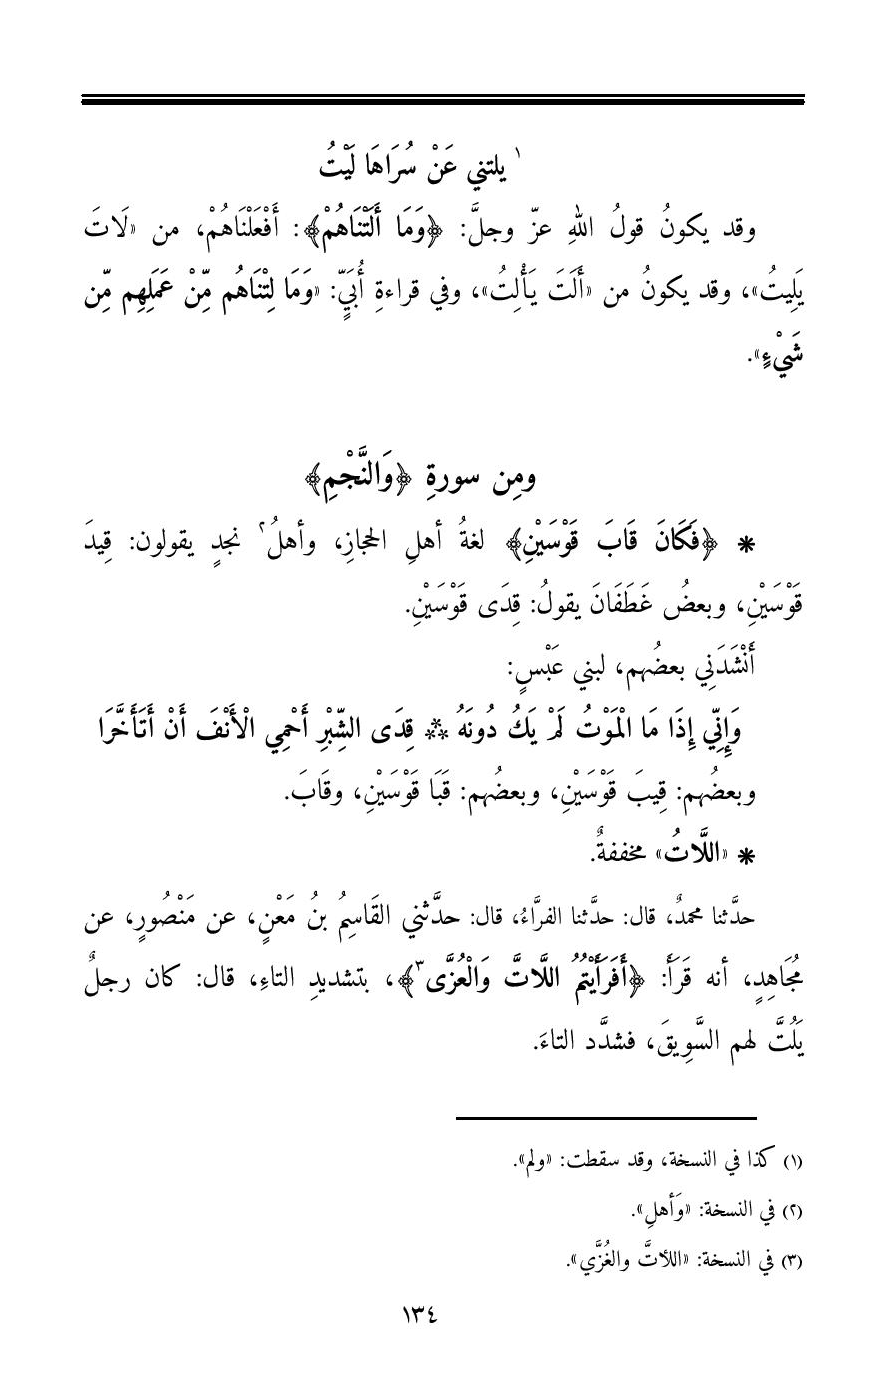 ١ يلتني عَنْ سُرَاهَا لَيْتُ
وقد يكونُ قولُ اللهِ عزّ وجلَّ: ﴿وَمَا أَلَتْنَاهُمْ﴾: أَفْعَلْنَاهُمْ، من «لَاتَ
يَلِيتُ»، وقد يكونُ من «أَلَتَ يَأْلِتُ»، وفي قراءةِ أُبَيٍّ: «وَمَا لِتْنَاهُم مِّنْ عَمَلِهِم مِّن
شَيْءٍ».
ومِن سورةِ ﴿وَالنَّجْمِ﴾
* ﴿فَكَانَ قَابَ قَوْسَيْنِ﴾ لغةُ أهلِ الحجازِ، وأهلُ٢ نجدٍ يقولون: قِيدَ
قَوْسَيْنِ، وبعضُ غَطَفَانَ يقولُ: قِدَى قَوْسَيْنِ.
أَنْشَدَنِي بعضُهم، لبني عَبْسٍ:
وَإِنِّي إِذَا مَا الْمَوْتُ لَمْ يَكُ دُونَهُ ** قِدَى الشِّبْرِ أَحْمِي الْأَنْفَ أَنْ أَتَأَخَّرَا
وبعضُهم: قِيبَ قَوْسَيْنِ، وبعضُهم: قَبَا قَوْسَيْنِ، وقَابَ.
* «اللَّاتُ» مخففةٌ.
حدَّثنا محمدٌ، قال: حدَّثنا الفرَّاءُ، قال: حدَّثني القَاسِمُ بنُ مَعْنٍ، عن مَنْصُورٍ، عن
مُجَاهِدٍ، أنه قَرَأَ: ﴿أَفَرَأَيْتُمُ اللَّاتَّ وَالْعُزَّى٣﴾، بتشديدِ التاءِ، قال: كان رجلٌ
يَلُتَّ لهم السَّوِيقَ، فشدَّد التاءَ.
(١) كذا في النسخة، وقد سقطت: «ولم».
(٢) في النسخة: «وَأهلِ».
(٣) في النسخة: «اللأتَّ والعُزَّي».
١٣٤